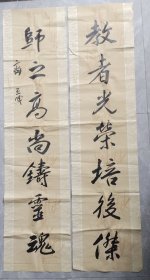 教者光榮培後傑
師之高尚鑄靈魂